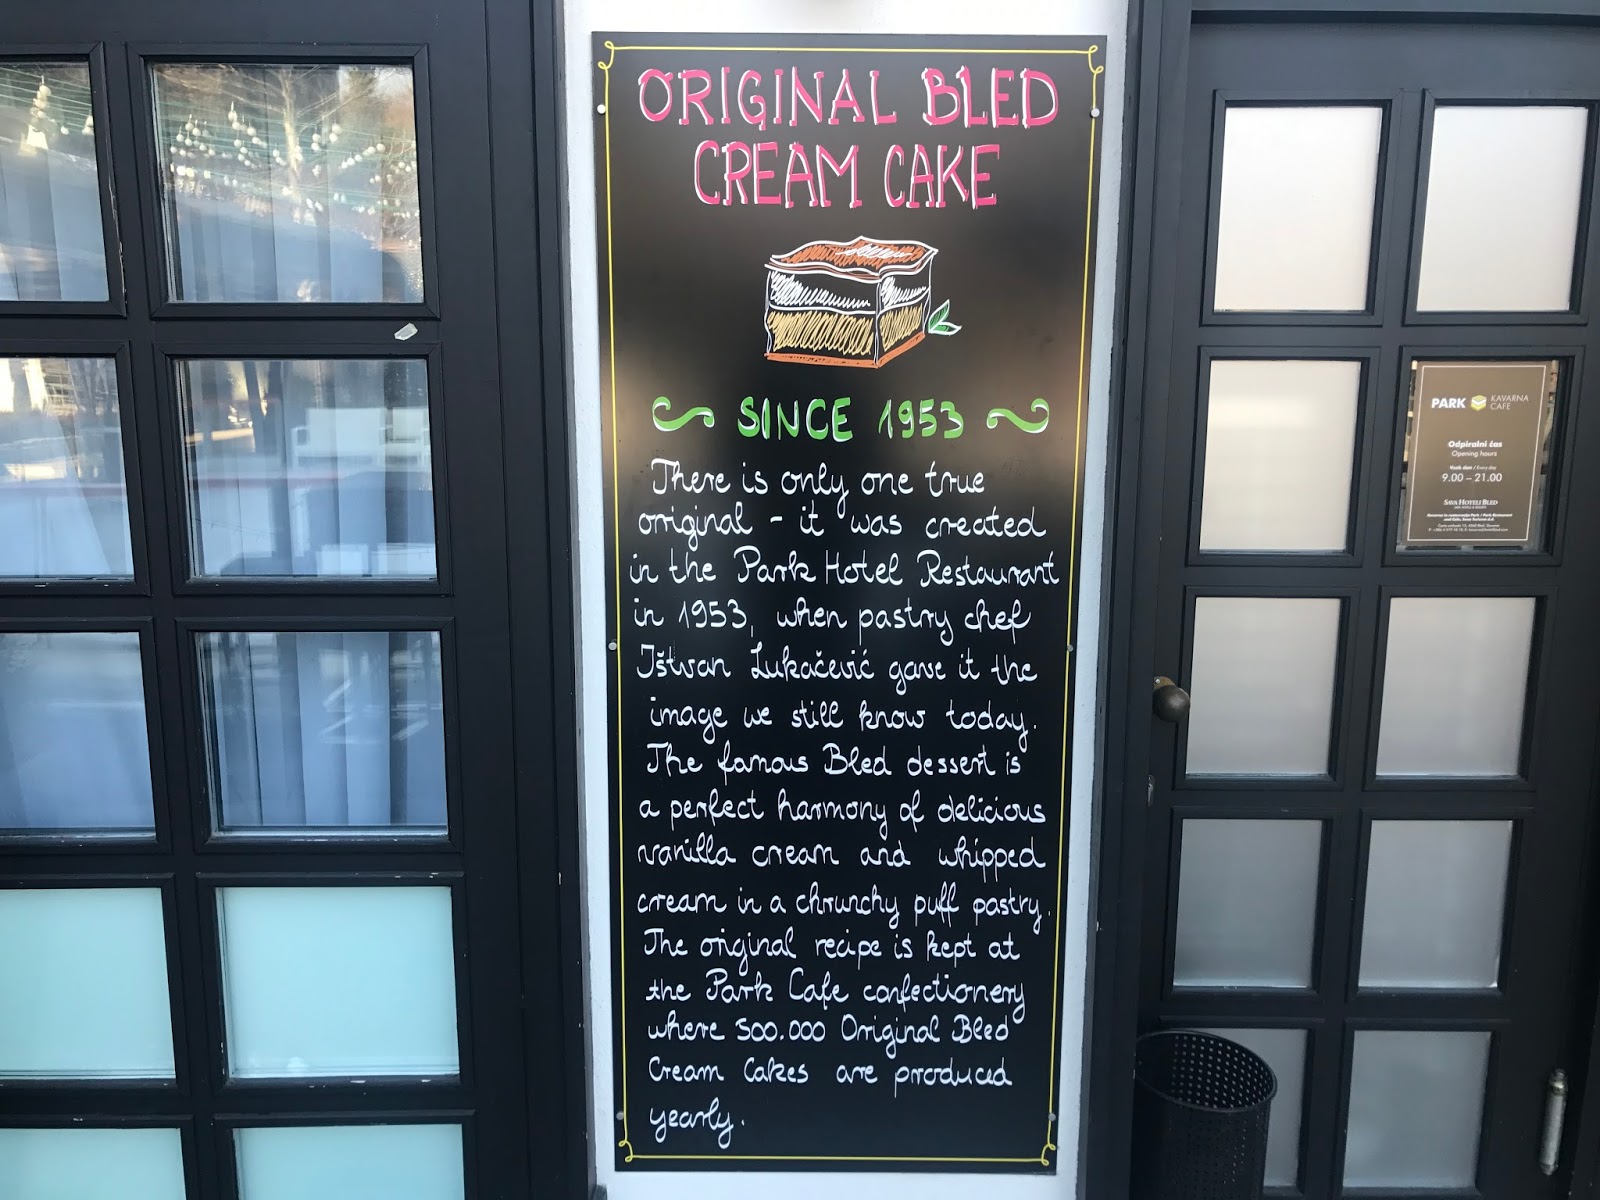 ORIGINAL BLED
CREAM CAKE
SINCE 1953
There is only one true
original - it was created
in the Park Hotel Restaurant
in 1953, when pastry chef
Ištvan Lukačević gave it the
image we still know today.
The famous Bled dessert is
a perfect harmony of delicious
vanilla cream and whipped
cream in a chrunchy puff pastry.
The original recipe is kept at
the Park Cafe confectionery
where 500.000 Original Bled
Cream Cakes are produced
yearly.
PARK KAVARNA
CAFE
Odpiralni čas
Opening hours
Vsak dan / Every day
9.00 – 21.00
SAVA HOTELI BLED